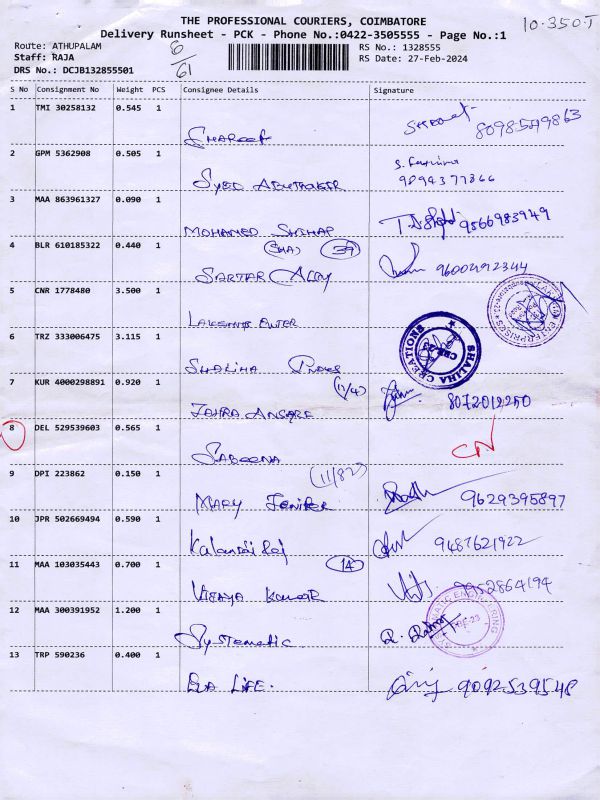 THE PROFESSIONAL COURIERS, COIMBATORE
10.350
Delivery Runsheet - PCK - Phone No.:0422-3505555 - Page No.:1
Route: ATHUPALAM
6/61
RS No.: 1328555
Staff: RAJA
RS Date: 27-Feb-2024
DRS No.: DCJB132855501
S No Consignment No Weight PCS Consignee Details Signature
1 TMI 30258132 0.545 1
SHAREEF 8098549863
2 GPM 5362908 0.505 1
SYED ABUTHAKIR 9894377866
3 MAA 863961327 0.090 1
MOHAMED SHIHAP 9566983949
4 BLR 610185322 0.440 1
(SHA) 39
SARTAR ALLY 9600492344
5 CNR 1778480 3.500 1
ENTERPRISES
6 TRZ 333006475 3.115 1
SHALIHA
SHALIHA CREATIONS
CBE-23
7 KUR 4000298891 0.920 1
(11/4)
ZAHRA ANSARE 8072012250
8 DEL 529539603 0.565 1
SABEENA CN
9 DPI 223862 0.150 1
(11/82)
MARY JENIFER 9629395897
10 JPR 502669494 0.590 1
9487621922
11 MAA 103035443 0.700 1
14
VIJAYA KUMAR 9952864194
12 MAA 300391952 1.200 1
Systematic
13 TRP 590236 0.400 1
LIFE. 9092539548